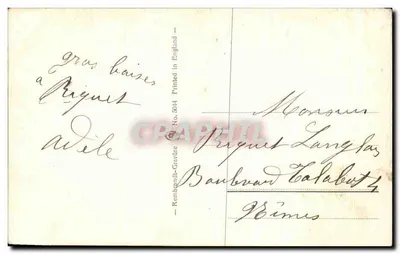 gros baises
à Riquet
adèle
— Rembrandt-Gravure No. 5014 Printed in England —
Monsieur
Riquet Langlois
Boulevard Talabot 4
Nîmes